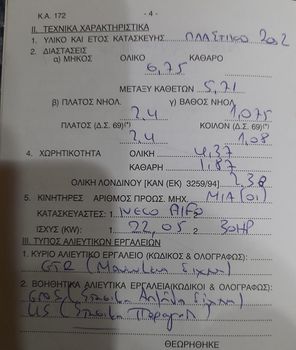 Κ.Α. 172 - 4 -
II. ΤΕΧΝΙΚΑ ΧΑΡΑΚΤΗΡΙΣΤΙΚΑ
1. ΥΛΙΚΟ ΚΑΙ ΕΤΟΣ ΚΑΤΑΣΚΕΥΗΣ ΠΛΑΣΤΙΚΟ
2. ΔΙΑΣΤΑΣΕΙΣ
α) ΜΗΚΟΣ ΟΛΙΚΟ ΚΑΘΑΡΟ
6,75
ΜΕΤΑΞΥ ΚΑΘΕΤΩΝ 5,71
β) ΠΛΑΤΟΣ ΝΗΟΛ. γ) ΒΑΘΟΣ ΝΗΟΛ.
2.4 1,075
ΠΛΑΤΟΣ (Δ.Σ. 69)(*) ΚΟΙΛΟΝ (Δ.Σ. 69)(*)
2.4 1,08
4. ΧΩΡΗΤΙΚΟΤΗΤΑ ΟΛΙΚΗ 4.37
ΚΑΘΑΡΗ 1.87
ΟΛΙΚΗ ΛΟΝΔΙΝΟΥ [ΚΑΝ (ΕΚ) 3259/94] 2.38
5. ΚΙΝΗΤΗΡΕΣ ΑΡΙΘΜΟΣ ΠΡΟΩΣ. ΜΗΧ. ΜΙΑ (01)
ΚΑΤΑΣΚΕΥΑΣΤΕΣ: 1.
ΙΣΧΥΣ (KW): 1. 22,05 2. 30HP
III. ΤΥΠΟΣ ΑΛΙΕΥΤΙΚΩΝ ΕΡΓΑΛΕΙΩΝ
1. ΚΥΡΙΟ ΑΛΙΕΥΤΙΚΟ ΕΡΓΑΛΕΙΟ (ΚΩΔΙΚΟΣ & ΟΛΟΓΡΑΦΩΣ):
GTR (Μανωμένα Δίχτυα)
2. ΒΟΗΘΗΤΙΚΑ ΑΛΙΕΥΤΙΚΑ ΕΡΓΑΛΕΙΑ (ΚΩΔΙΚΟΙ & ΟΛΟΓΡΑΦΩΣ):
GNS (Στάσιμα Απλάδια Δίχτυα)
LLS (Στάσιμα Παραγάδια)
ΘΕΩΡΗΘΗΚΕ